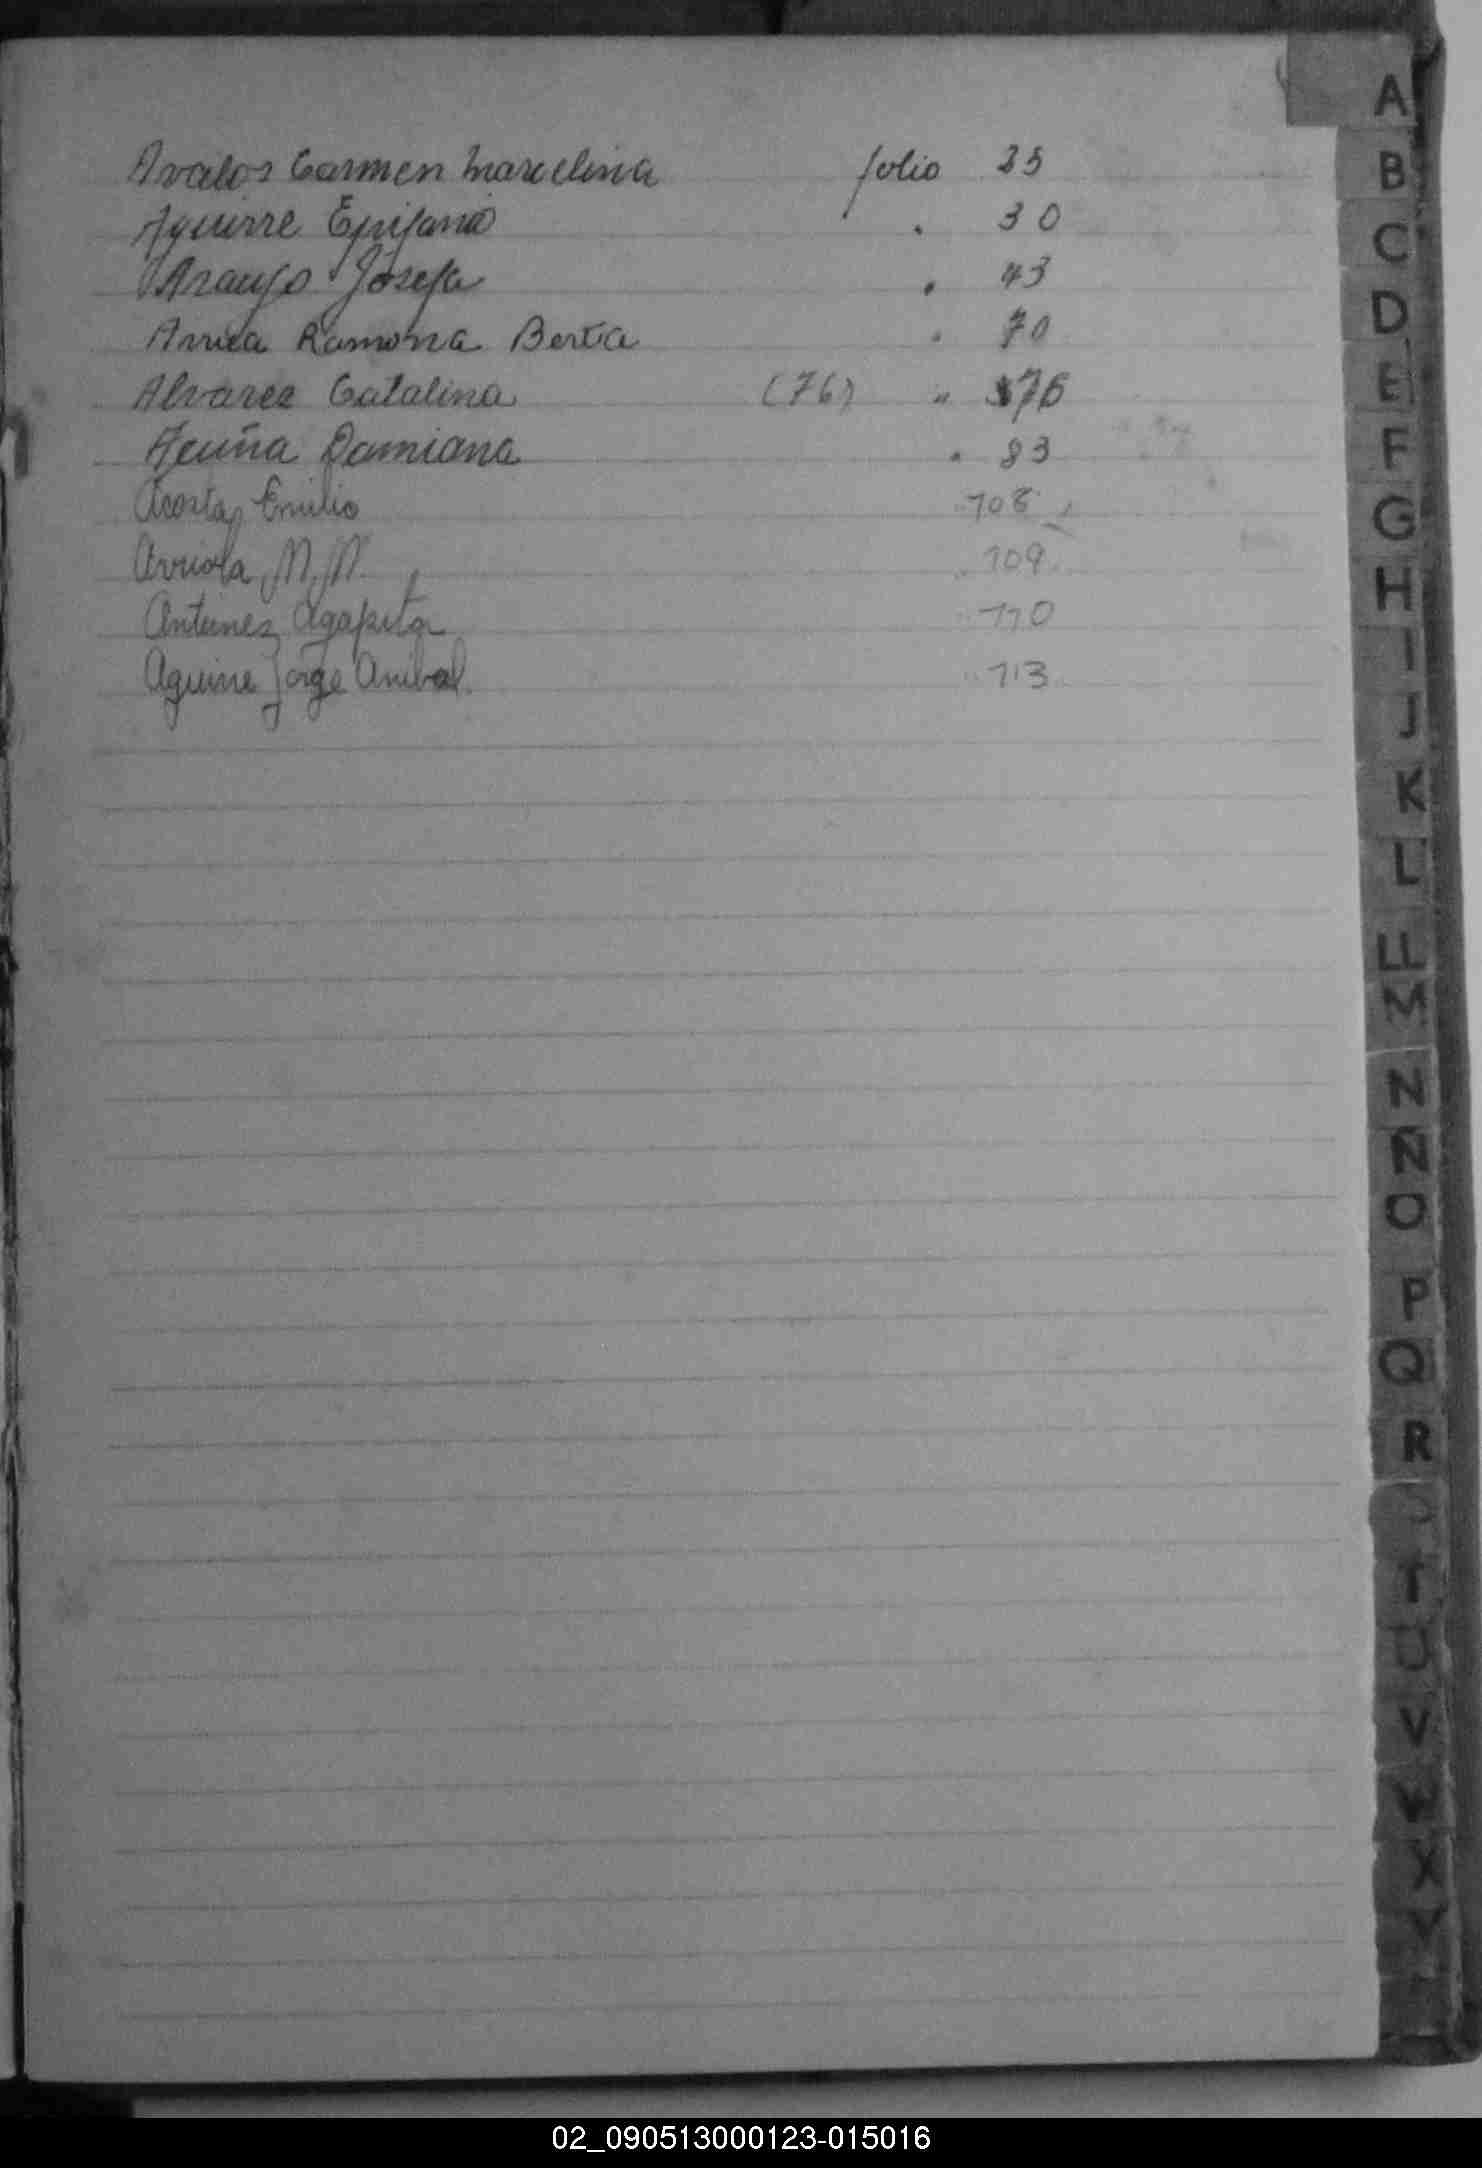 Avalos Carmen Marcelina folio 25
Aguirre Epifanio . 30
Araujo Josefa . 43
Ramona Berta . 70
Alvarez Catalina (76) " 76
Acuña Damiana . 83
Acosta, Emilio " 108
Arriola, N. N. " 109
Antunez Agapita " 110
Aguirre Jorge Anibal. " 113
A
B
C
D
E
F
G
H
I
J
K
L
LL
M
N
Ñ
O
P
Q
R
S
T
U
V
W
X
Y
02_090513000123-015016